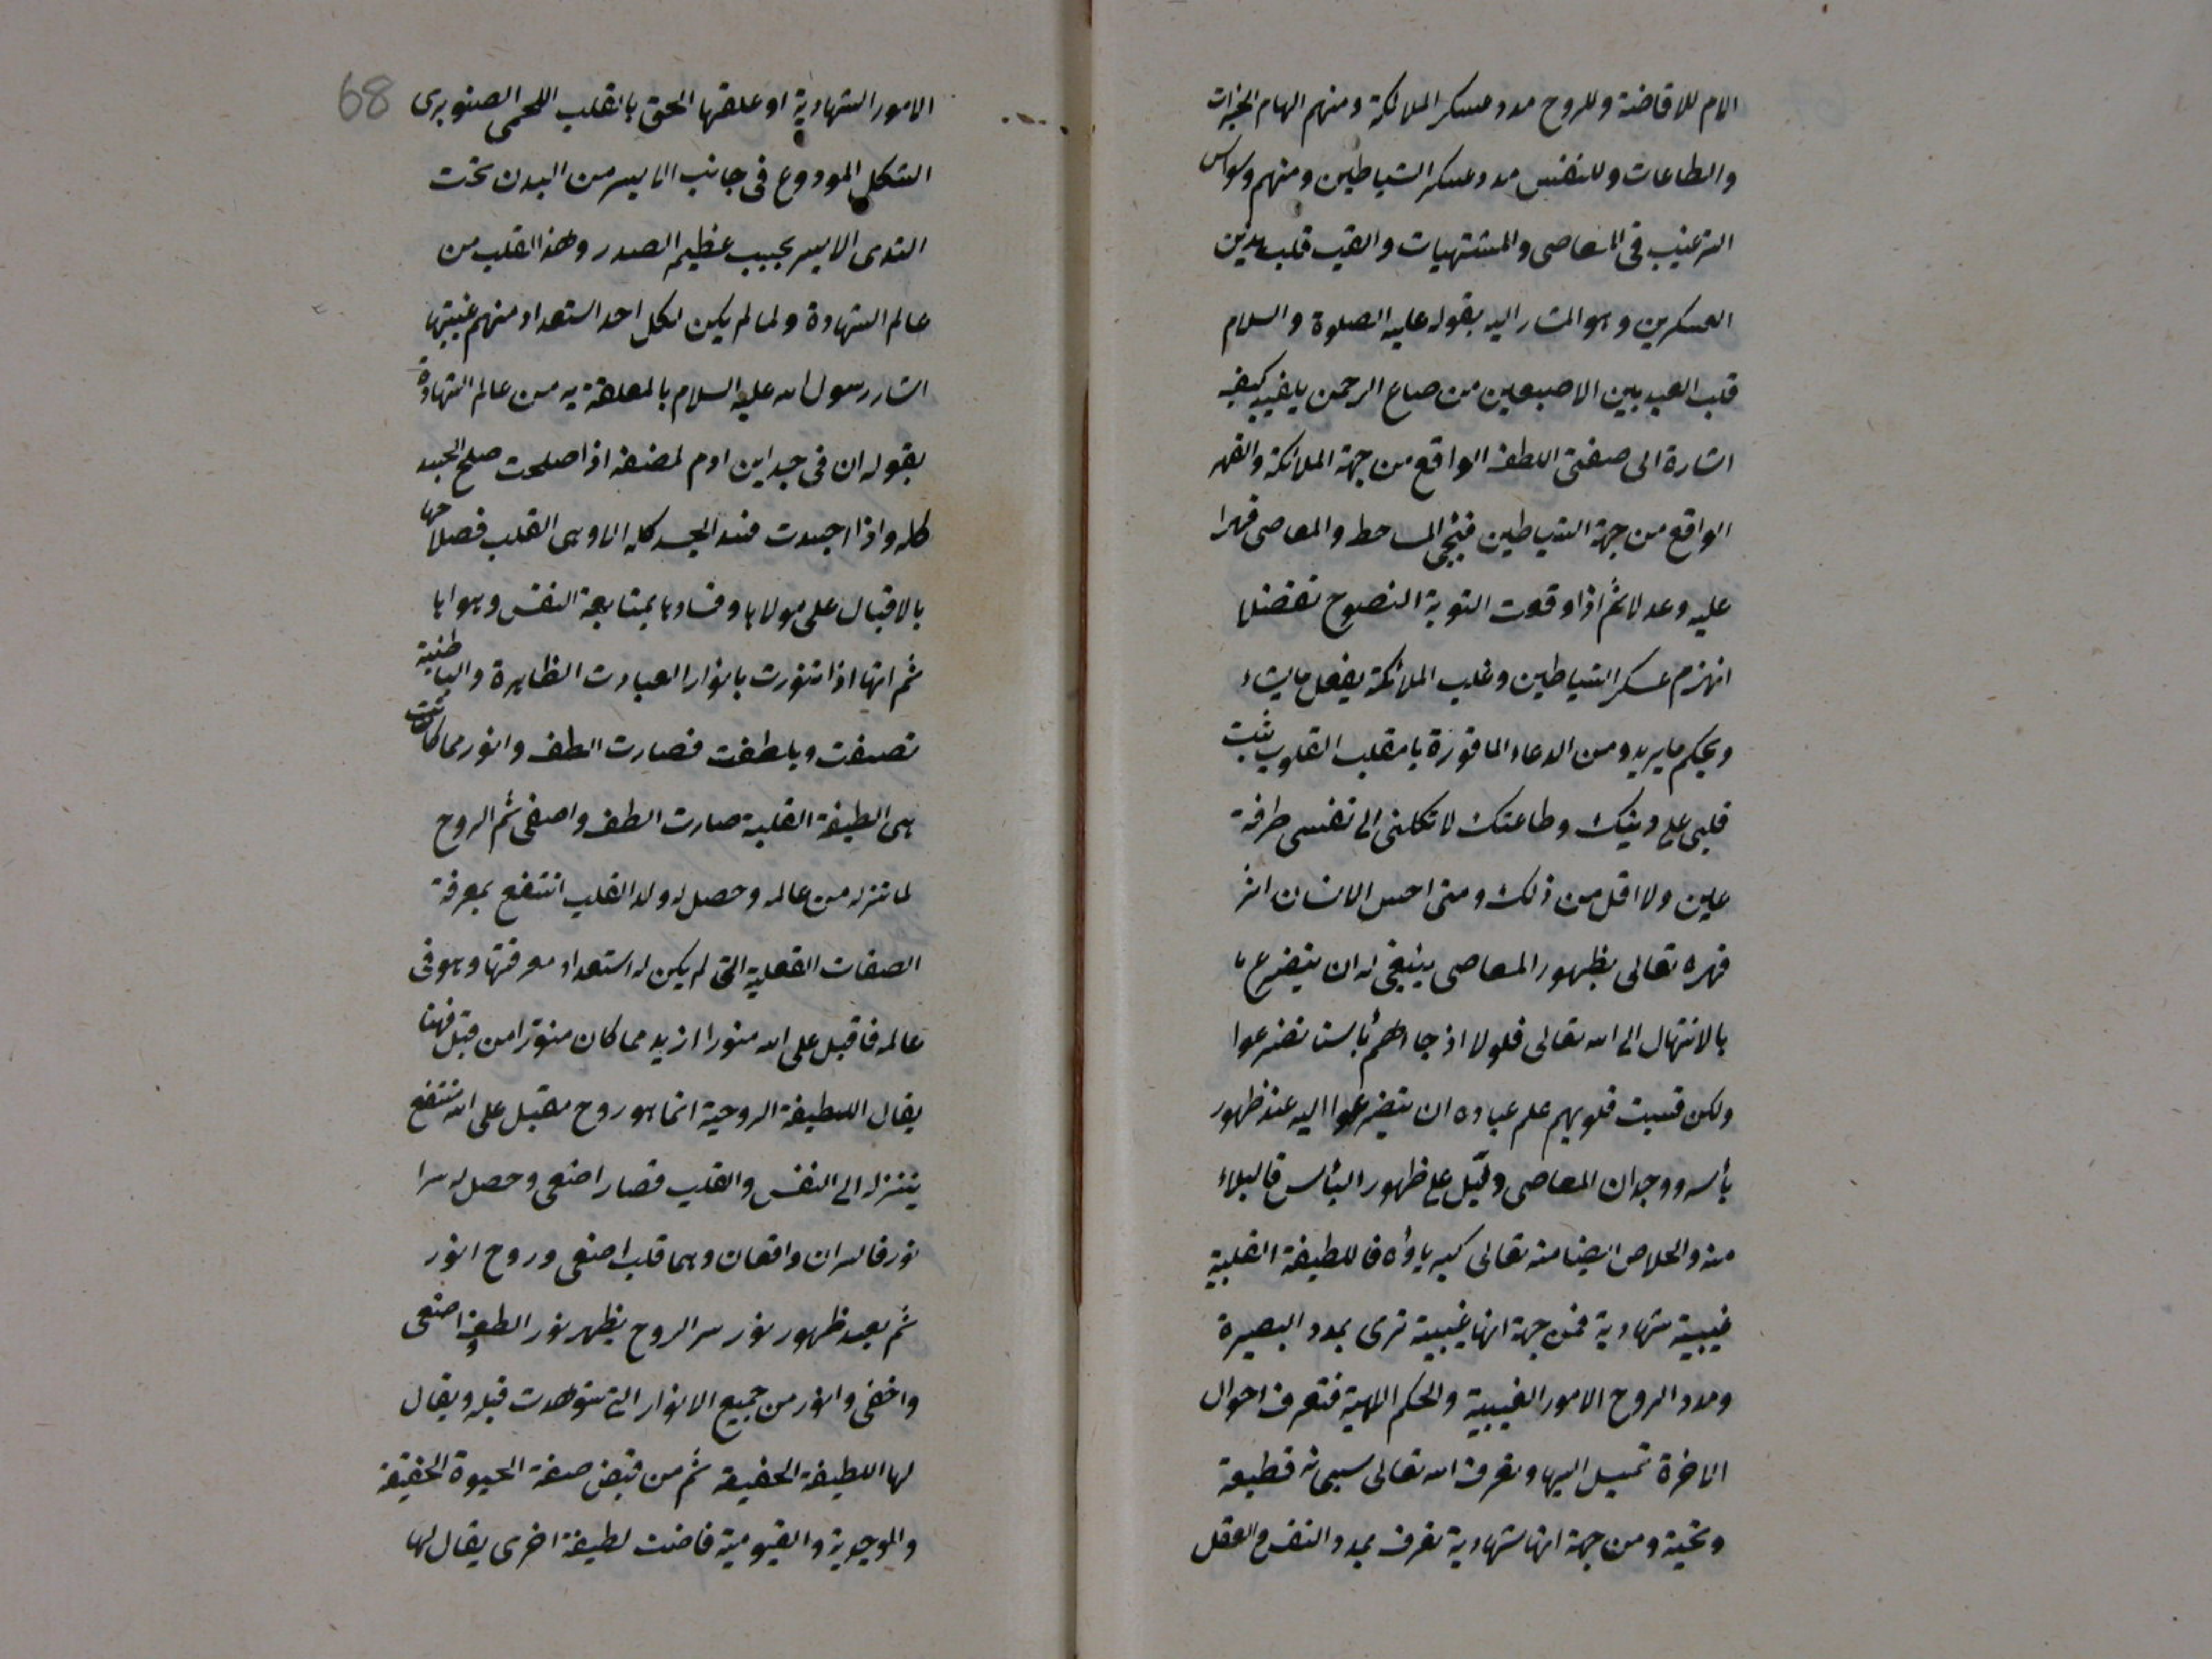 الام للافاضة وللروح مدد عسكر الملائكة ومنهم الهام الخيرات
والطاعات وللنفس مدد عسكر الشياطين ومنهم وسواس
الترغيب فى المعاصى والمشتهيات والقيب قلب بدين
العسكرين وهو المشار اليه بقوله عليه الصلوة والسلام
قلب العبد بين الاصبعين من صباع الرحمن يقلبه كيف
اشارة الى صفتى اللطف الواقع من جهة الملائكة والقهر
الواقع من جهة الشياطين فيجى المساخط والمعاصى قهرا
عليه وعدلا ثم اذا وقعت التوبة النصوح تفضلا
انهزم عسكر الشياطين وغلب الملائكة يفعل ما يشاء
ويحكم ما يريد ومن الدعاء الماثورة يا مقلب القلوب ثبت
قلبى على دينك وطاعتك لا تكلنى الى نفسى طرفة
عين ولا اقل من ذلك ومتى احس الانسان اثر
قهره تعالى بظهور المعاصى ينبغى له ان يتضرع
بالابتهال الى الله تعالى فلولا اذ جاءهم بأسنا تضرعوا
ولكن قست قلوبهم علم عباده ان يتضرعوا اليه عند ظهور
بأسه ووجدان المعاصى دليل على ظهور البأس فالبلاء
منه والخلاص ايضا منه تعالى كبرياؤه فاللطيفة القلبية
غيبية شهادية فمن جهة انها غيبية ترى بمدد البصيرة
ومدد الروح الامور الغيبية والحكم الالهية فتعرف احوال
الاخرة تميل اليها وتعرف الله تعالى سبحانه قطيعة
ومن جهة انها شهادية تعرف بمدد النفس والعقل
68
الامور الشهادية او علقها الحق بالقلب اللحمى الصنوبرى
الشكل المودوع فى جانب الايسر من البدن تحت
الثدى الايسر بجيب عظيم الصدر وهذا القلب من
عالم الشهادة ولما لم يكن لكل احد استعداد منهم غيبتها
اشار رسول الله عليه السلام بالمعلقة به من عالم الشهادة
بقوله ان فى جسد ابن ادم لمضغة اذا صلحت صلح الجسد
كله واذا فسدت فسد الجسد كله الا وهى القلب فصلاحها
بالاقبال على مولاها وفسادها بمتابعة النفس وهواها
ثم انها اذا تنورت بانوار العبادت الظاهرة والباطنية
تصفت وتلطفت فصارت الطف وانور مما كانت
هى الطيفة القلبية صارت الطف واصفى ثم الروح
لما تنزله من عالمه وحصل له ولد القلب انتفع بمعرفة
الصفات الفعلية التى لم يكن له استعداد معرفتها وهو فى
عالمه فاقبل على الله منورا ازيد مما كان منورا من قبل فهنا
يقال اللطيفة الروحية انما هو روح مقبل على الله منتفع
بتنزله الى النفس والقلب فصار اصفى وحصل له سرا
نور فالسران واقعان وهما قلب اصفى وروح انور
ثم بعد ظهور نور سر الروح يظهر نور الطف واصفى
واخفى وانور من جميع الانوار التى شوهدت قبله ويقال
لها اللطيفة الخفية ثم من فيض صفة الحيوة الحقيقة
والموجودية والقيومية فاضت لطيفة اخرى يقال لها